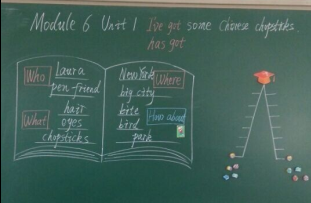 Module 6 Unit 1 I've got some Chinese chopsticks.
has got
Who
Laura
pen friend
What
hair
eyes
chopsticks
New York
Where
big city
kite
How about
bird
park